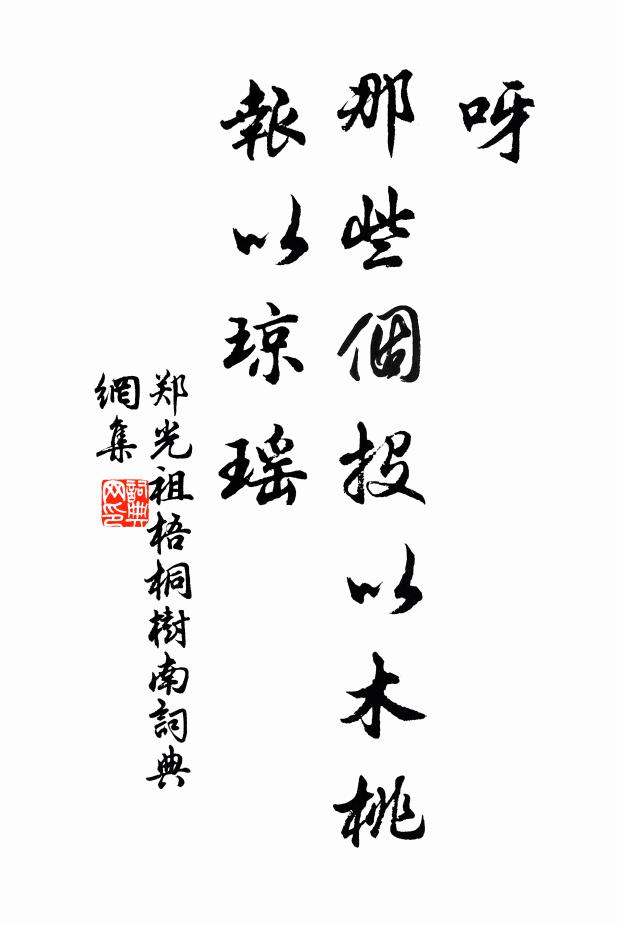 呀
那些個投以木桃
報以琼瑶
郑光祖梧桐樹南詞典
網集
詞典网印